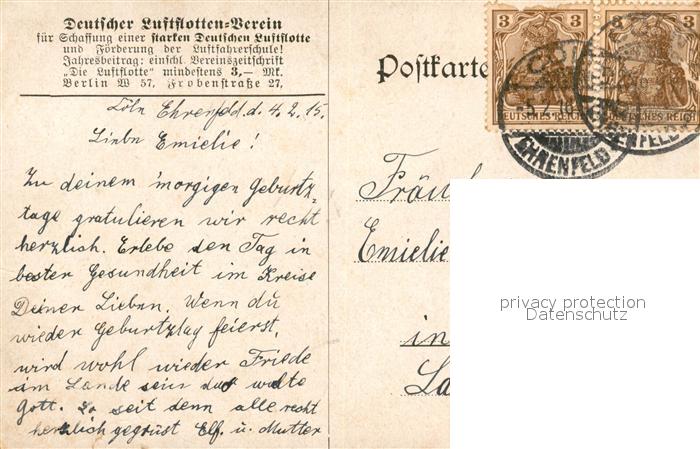 Deutscher Luftflotten-Verein
für Schaffung einer starken Deutschen Luftflotte
und Förderung der Luftfahrerschule!
Jahresbeitrag: einschl. Vereinszeitschrift
„Die Luftflotte" mindestens 3,— Mk.
Berlin W 57, Frobenstraße 27,
Cöln Ehrenfeld. d. 4.2.15.
Liebe Emielie!
Zu deinem morgigen Geburtz-
tage gratulieren wir recht
herzlich. Erlebe den Tag in
bester Gesundheit im Kreise
Deiner Lieben. Wenn du
wieder Geburtztag feierst,
wird wohl wieder Friede
im Lande sein das walte
Gott. So seit denn alle recht
herzlich gegrüst Elf. u. Mutter
Postkarte
3 3
3 3
DEUTSCHES REICH
DEUTSCHES REICH
EHRENFELD
EHRENFELD
Fräu
Emielie
in
La
privacy protection
Datenschutz